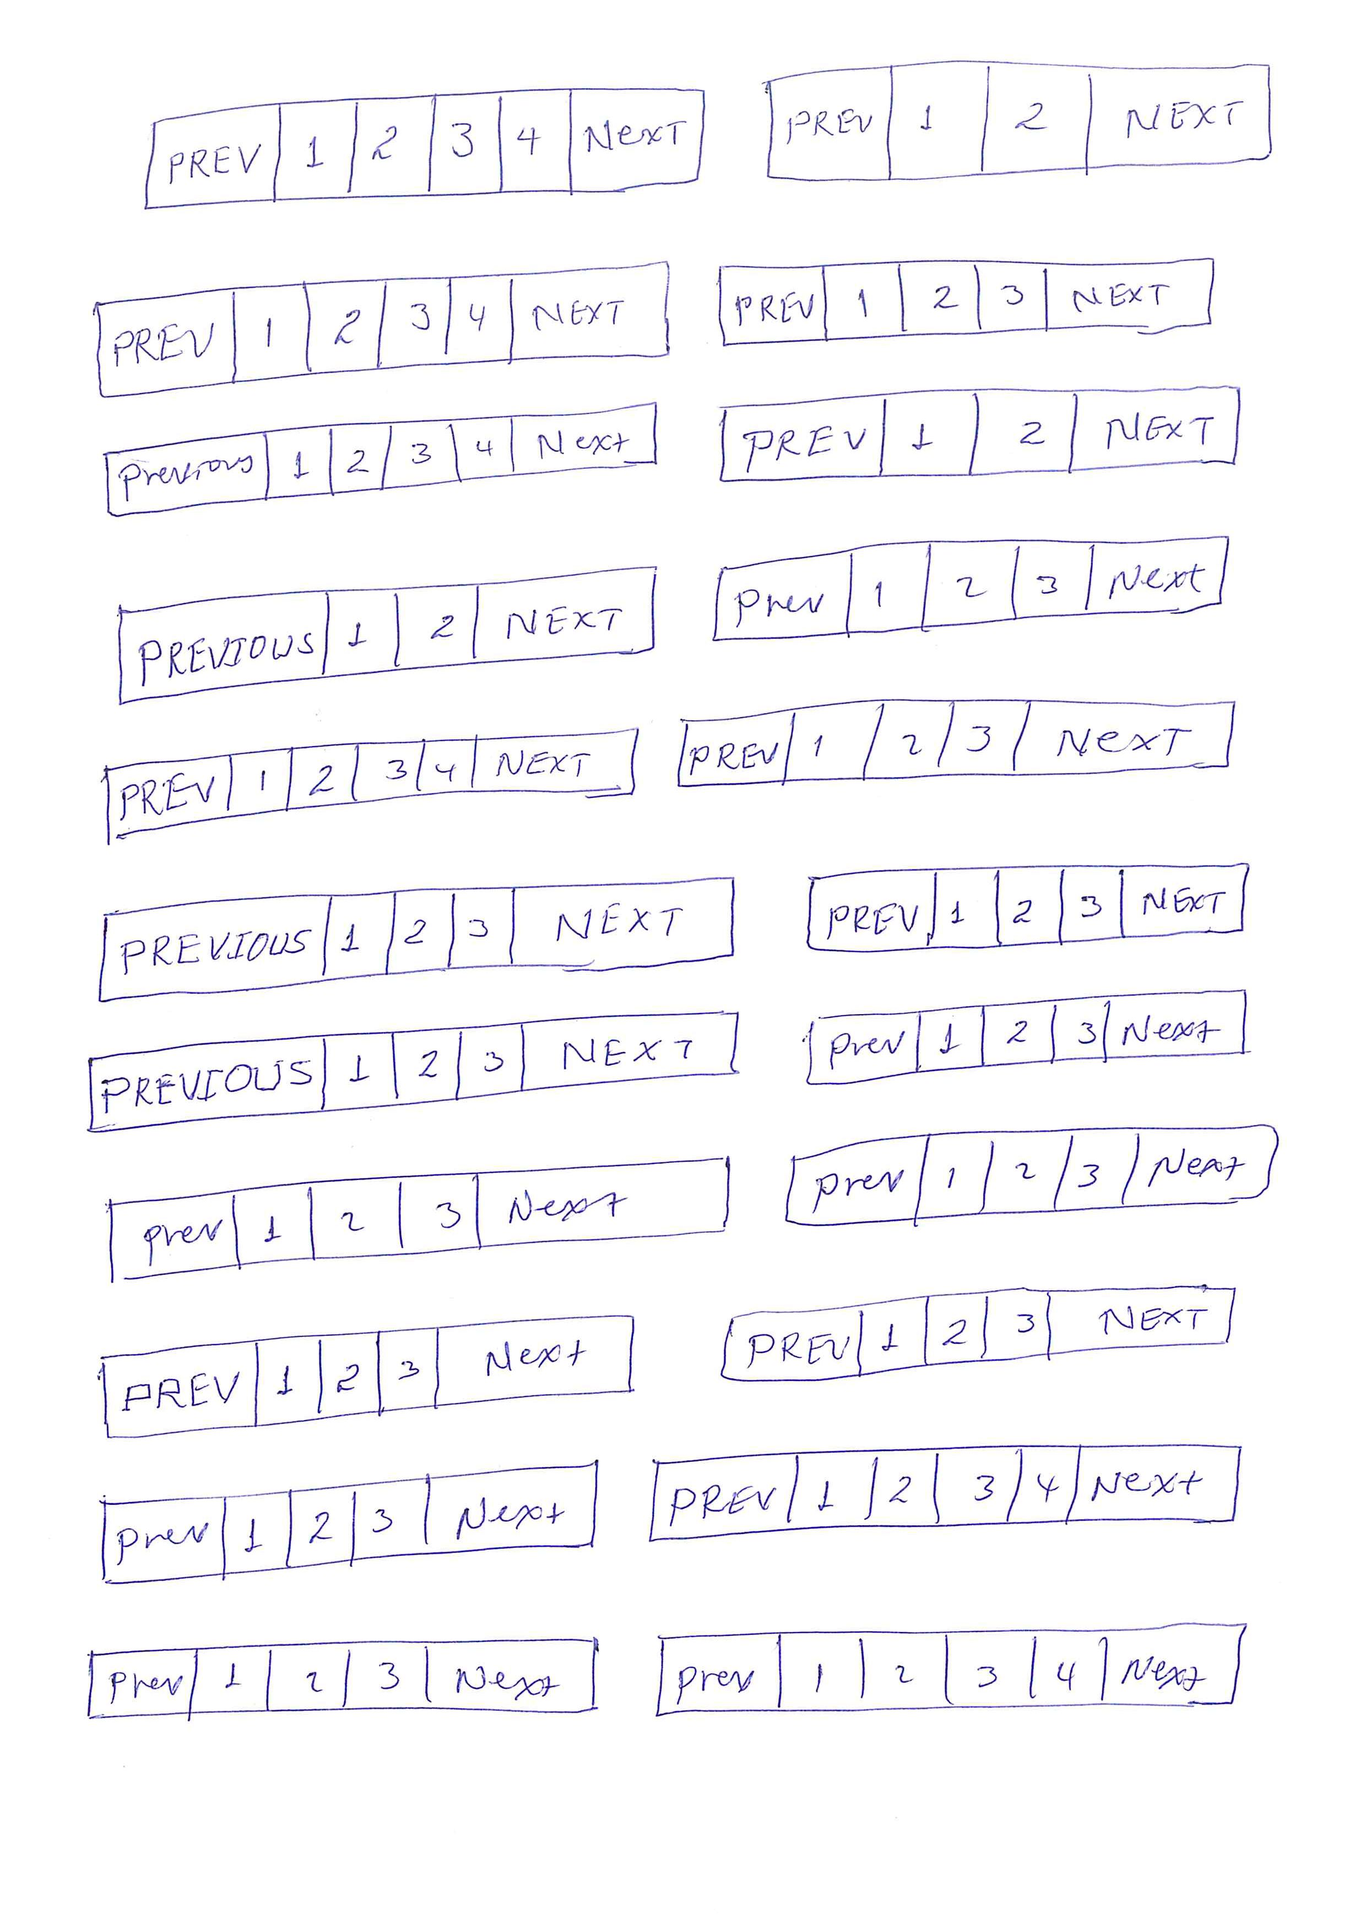 PREV 1 2 3 4 NeXT PREV 1 2 NEXT
PREV 1 2 3 4 NEXT PREV 1 2 3 NEXT
Previous 1 2 3 4 Next PREV 1 2 NEXT
PREVIOUS 1 2 NEXT Prev 1 2 3 Next
PREV 1 2 3 4 NEXT PREV 1 2 3 NeXT
PREVIOUS 1 2 3 NEXT PREV 1 2 3 NEXT
PREVIOUS 1 2 3 NEXT Prev 1 2 3 Next
prev 1 2 3 Next prev 1 2 3 Next
PREV 1 2 3 Next PREV 1 2 3 NEXT
prev 1 2 3 Next PREV 1 2 3 4 Next
Prev 1 2 3 Next prev 1 2 3 4 Next